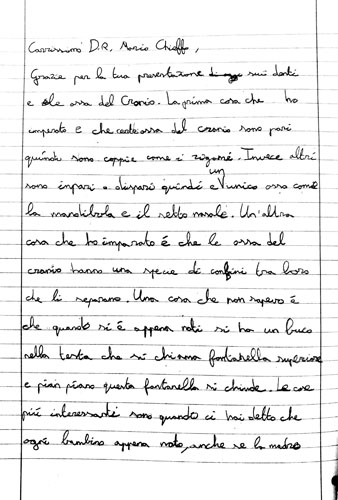 Carissimo D.R. Mario Chioff,
Grazie per la tua presentazione sui denti
e ole ossa del Cranio. La prima cosa che ho
imparato è che certe ossa del cranio sono pari
quindi sono coppie come i zigomi. Invece altri
sono inpari o dispari quindi è un unico osso come
la mandibola e il setto nasale. Un'altra
cosa che ho imparato è che le ossa del
cranio hanno una specie di confini tra loro
che li separano. Una cosa che non sapevo è
che quando si è appena nati si ha un buco
nella testa che si chiama fontanella superiore
e pian piano questa fontanella si chiude. Le cose
più interessanti sono quando ci hai detto che
ogni bambino appena nato, anche se la madre